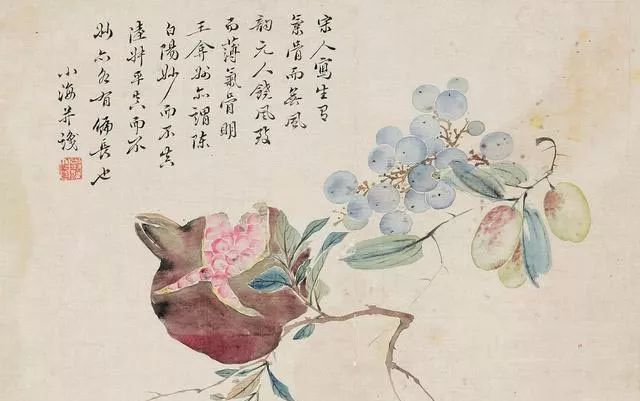 宋人寫生有
氣骨而無風
韻元人饒風致
而薄氣骨明
王弇州亦謂陳
白陽妙而不真
陸叔平真而不
妙亦各有偏長也
小海并識